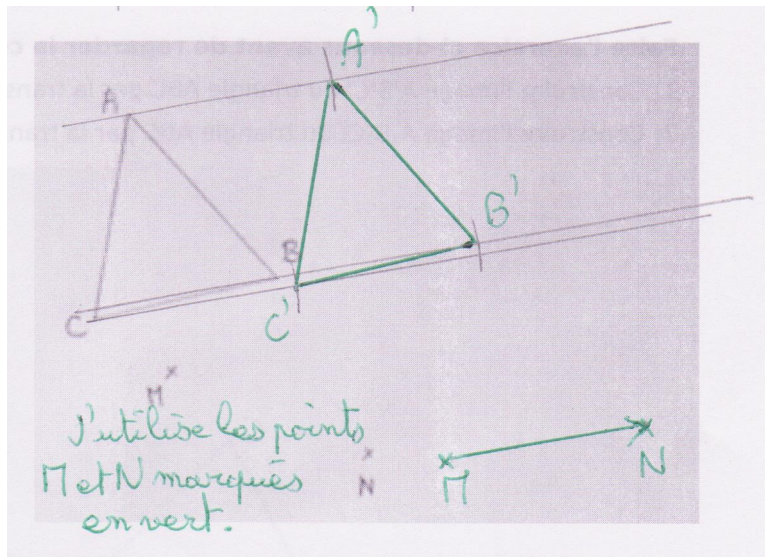 A'
A
B'
B
C
C'
M
J'utilise les points
M et N marqués
en vert.
N
M
N